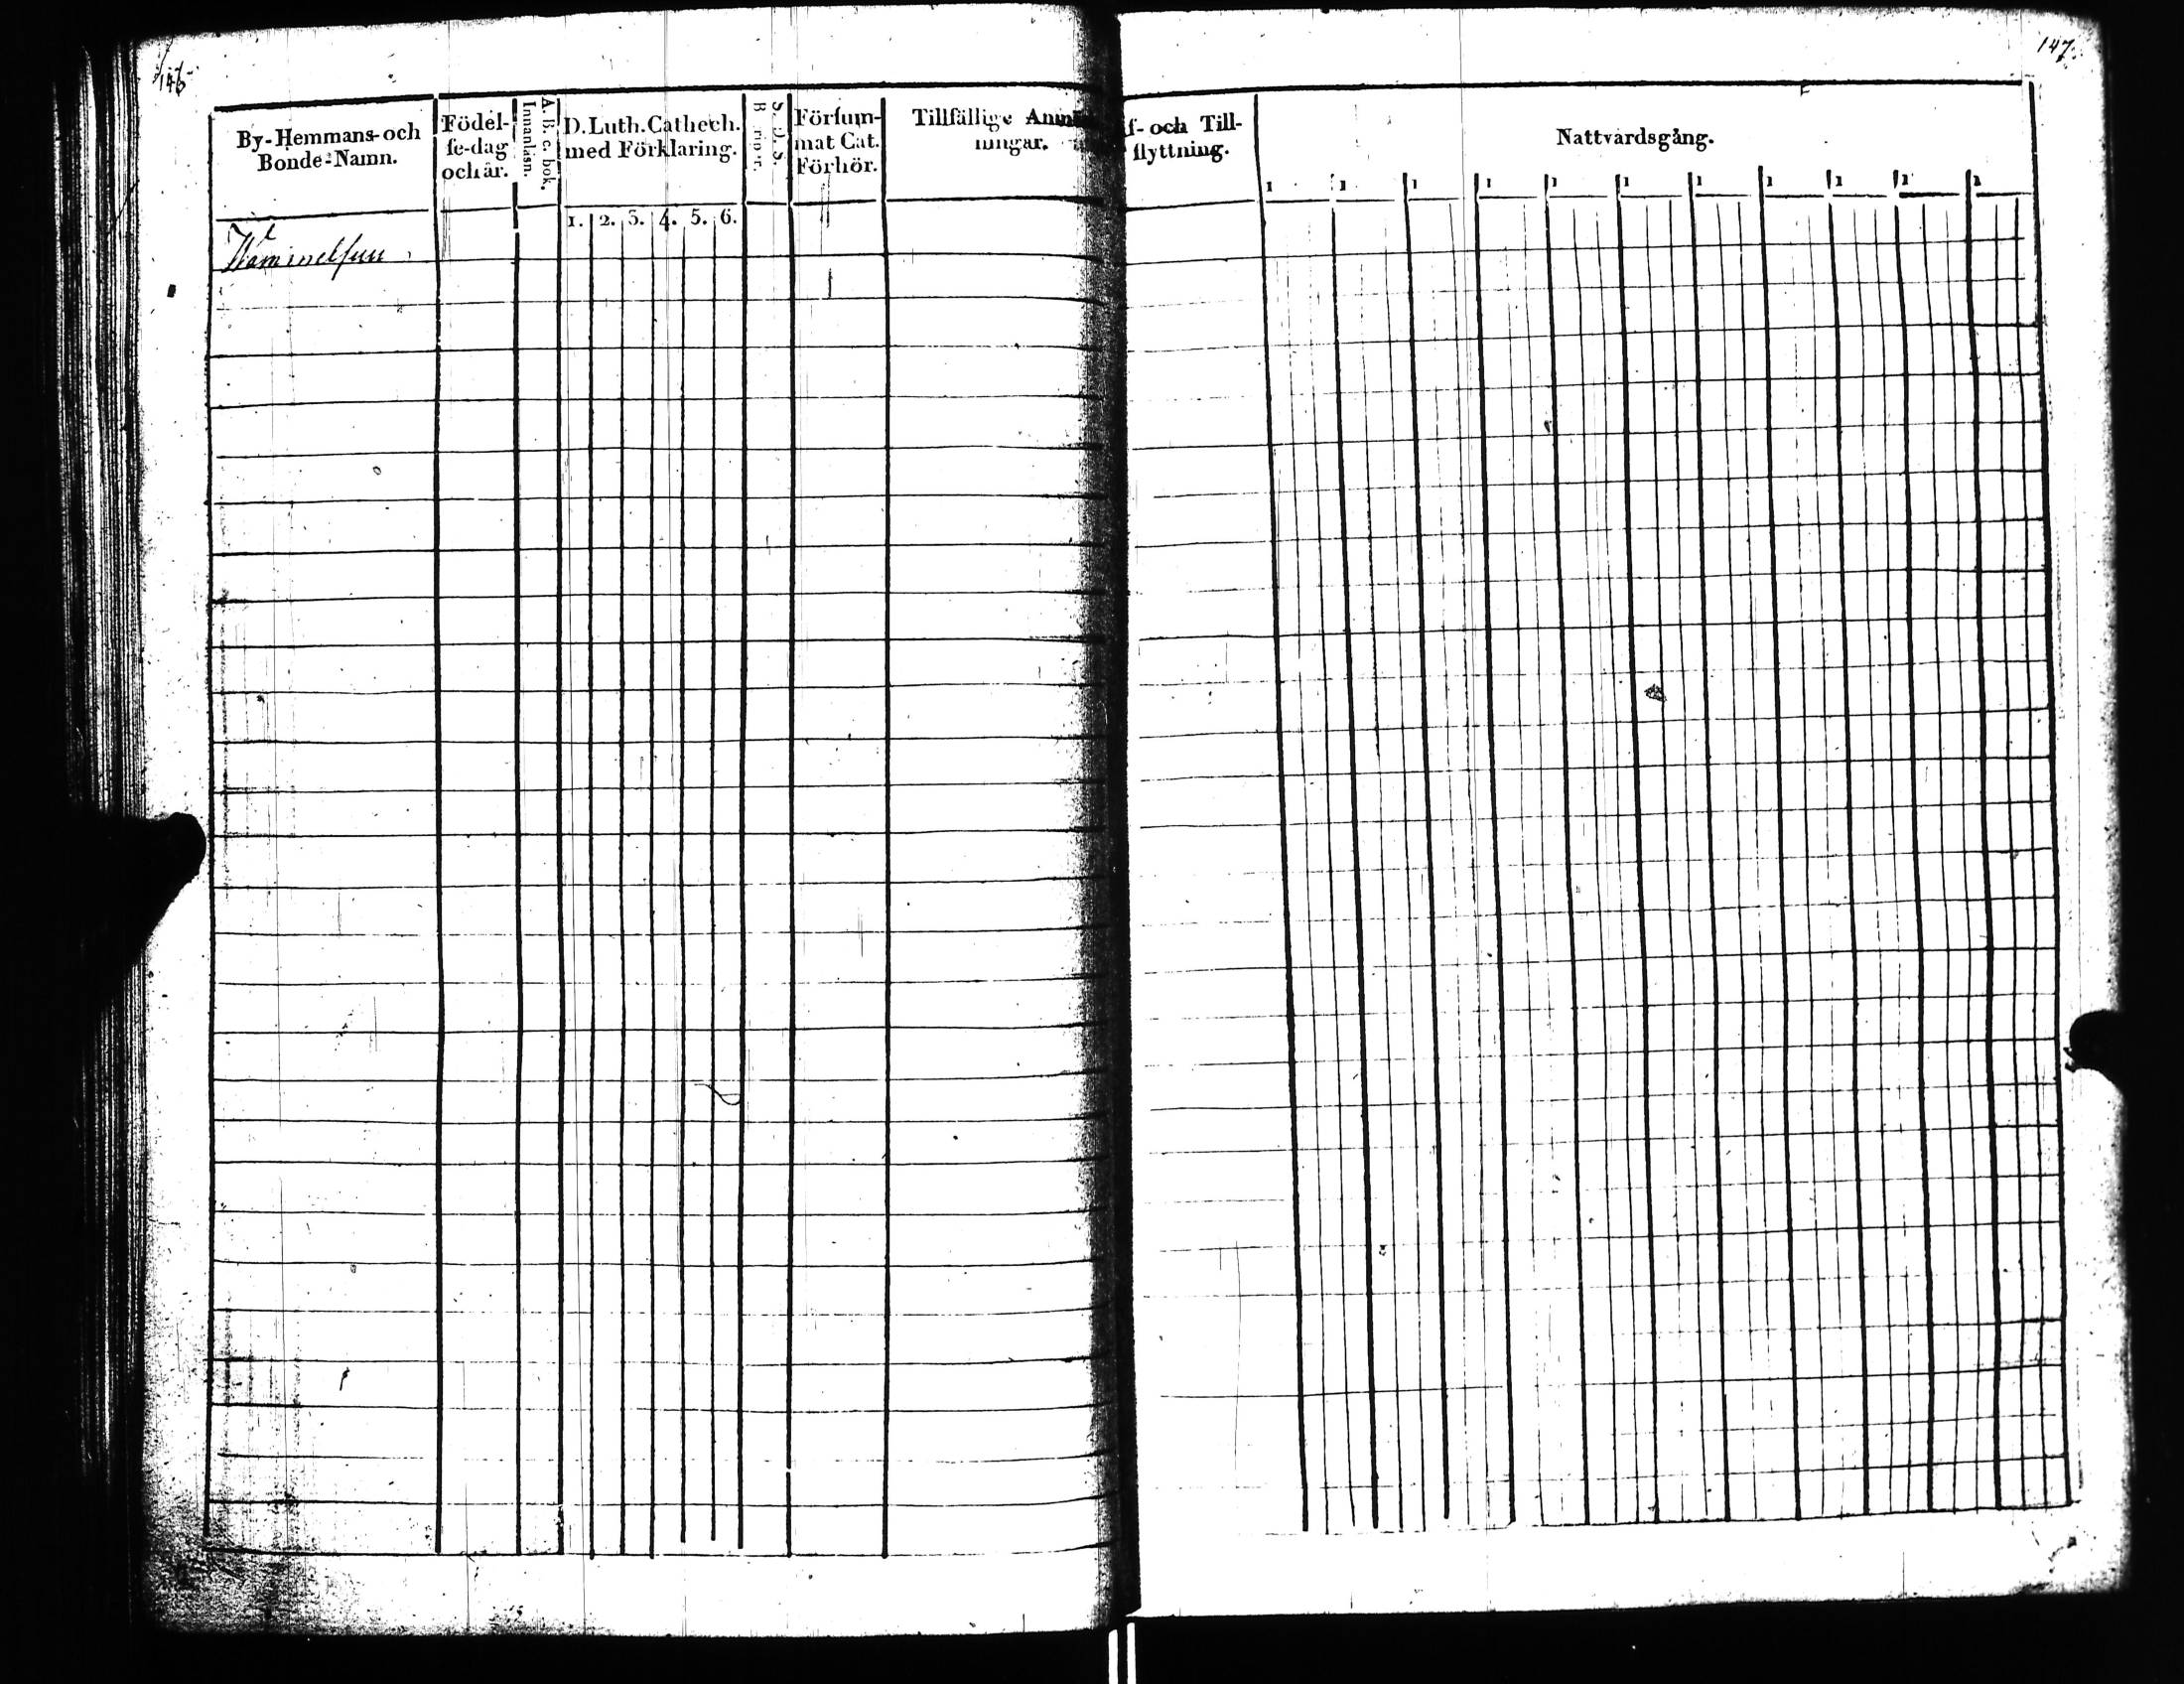 146
147.
By-Hemmans- och
Bonde-Namn.
Födel-
se-dag
och år.
A. B. c. bok.
Innanläsn.
D. Luth. Cathech.
med Förklaring.
1. 2. 3. 4. 5. 6.
Försum-
mat Cat.
Förhör.
Tillfällige Anm
ningar.
f- och Till-
flyttning.
Nattvardsgång.
1 1 1 1 1 1 1 1 1 1 1